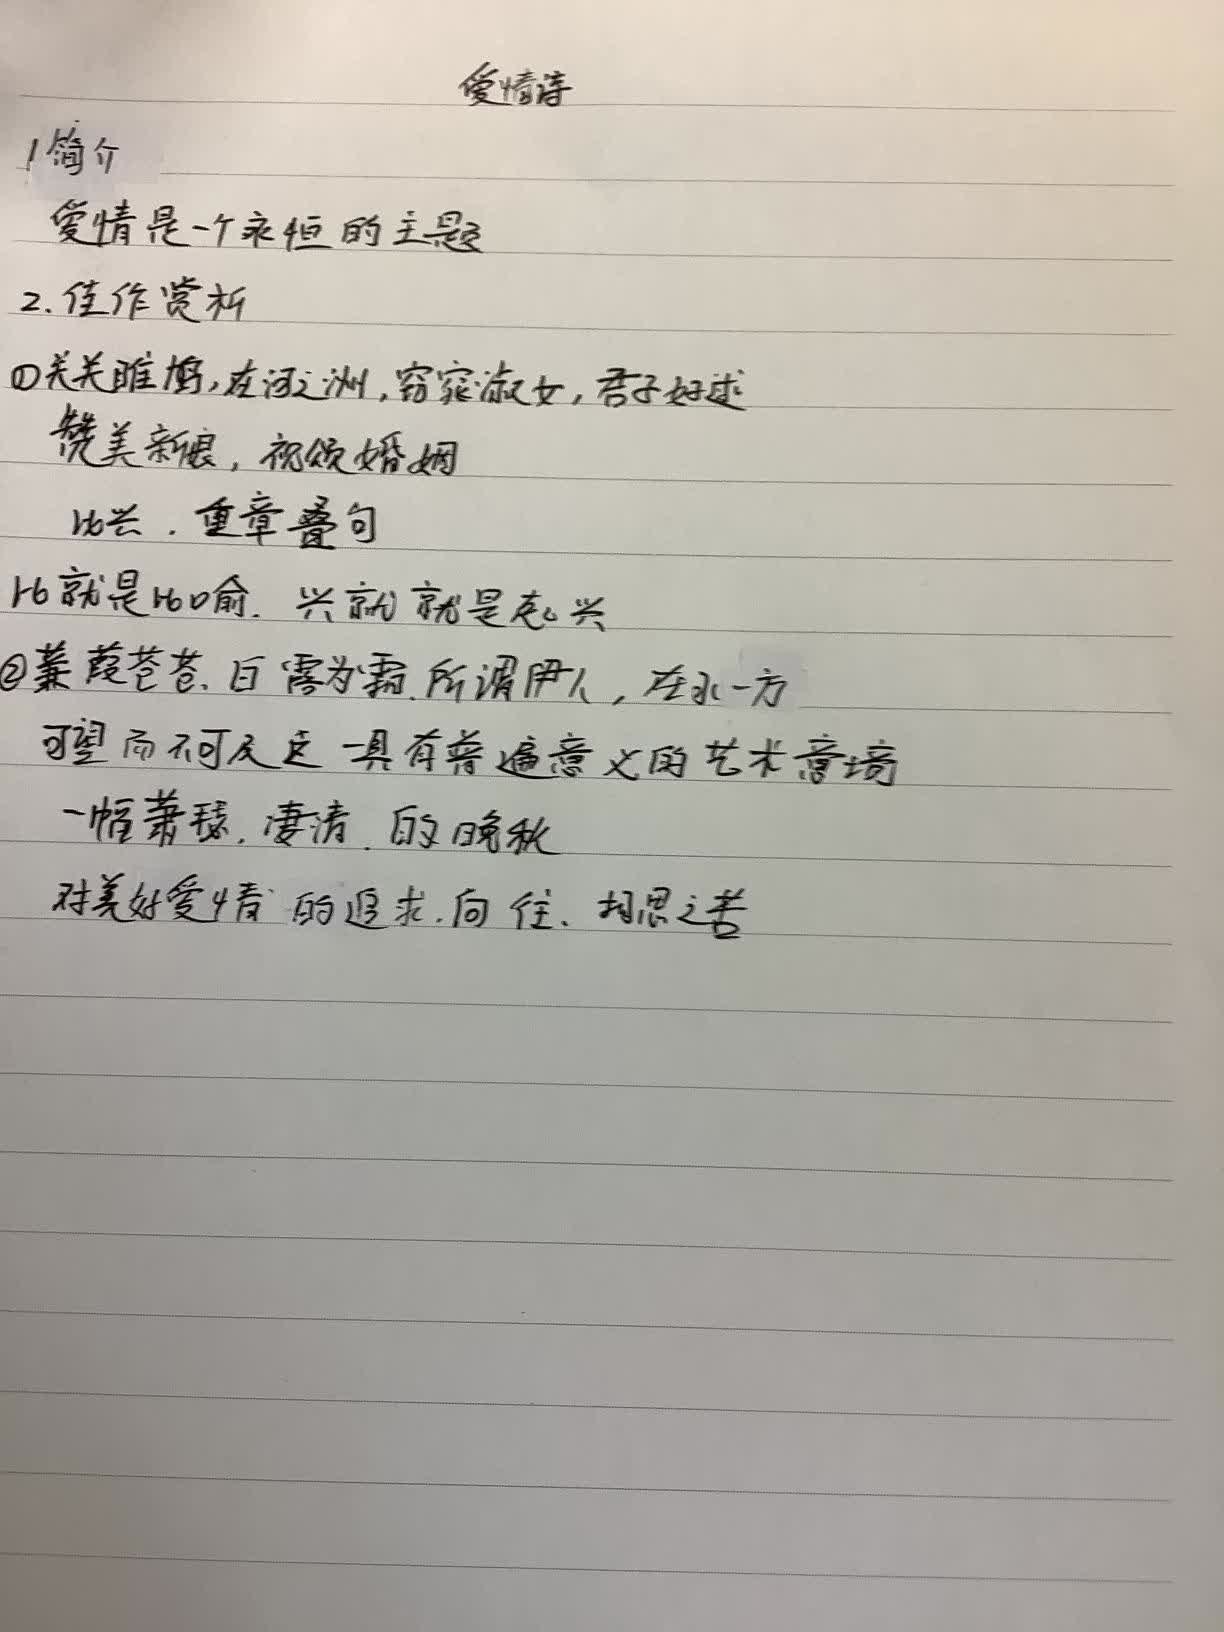 爱情诗
1 简介
爱情是一个永恒的主题
2. 佳作赏析
①关关雎鸠,在河之洲,窈窕淑女,君子好逑
赞美新娘,祝颂婚姻
比兴.重章叠句
比就是比喻.兴就就是起兴
②蒹葭苍苍、白露为霜.所谓伊人,在水一方
可望而不可及这一具有普遍意义的艺术意境
一幅萧瑟.凄清.的晚秋
对美好爱情的追求.向住、相思之苦